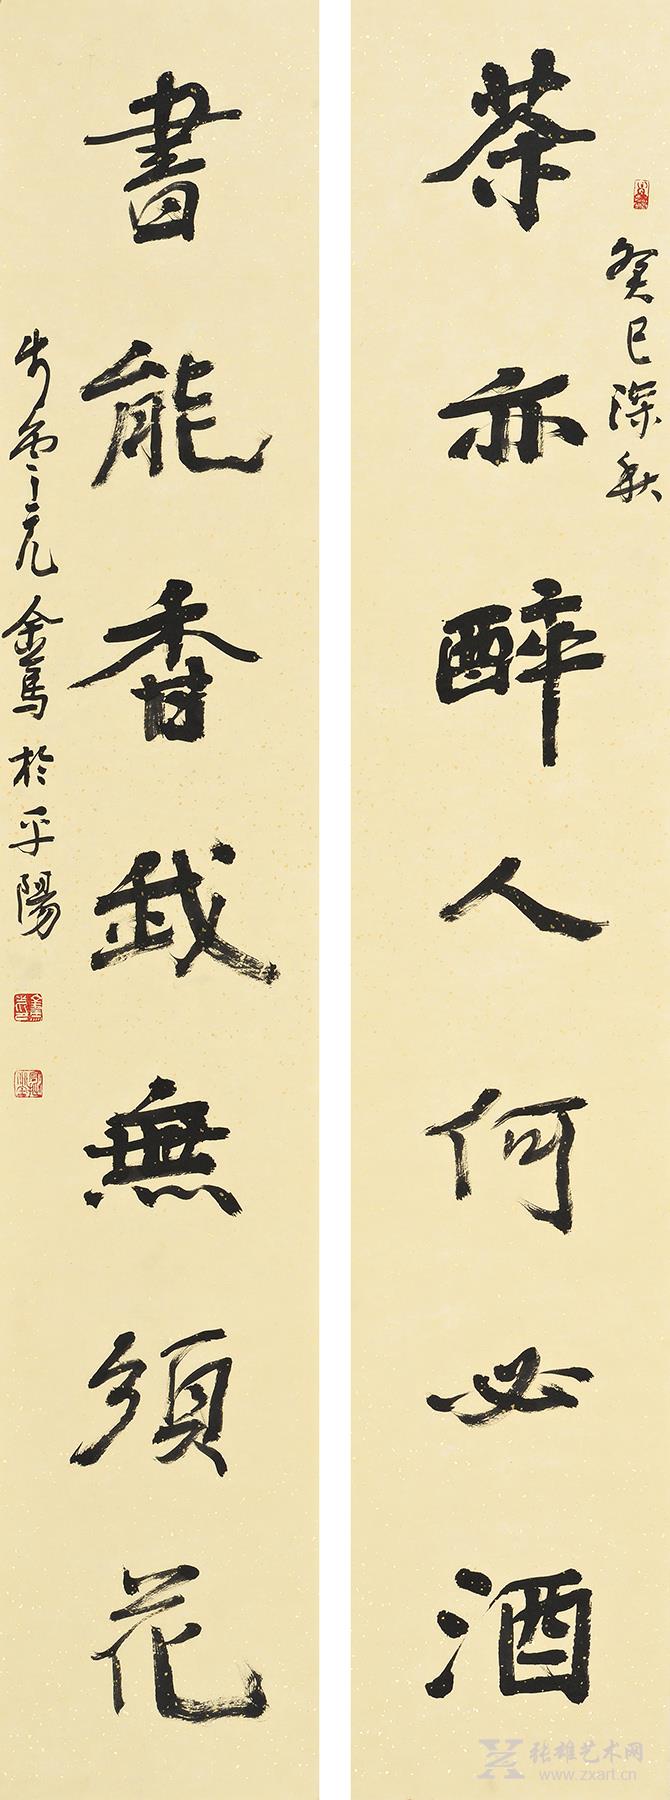 癸巳深秋
茶亦醉人何必酒
書能香我無須花
於平陽
张雄艺术网
www.zxart.cn